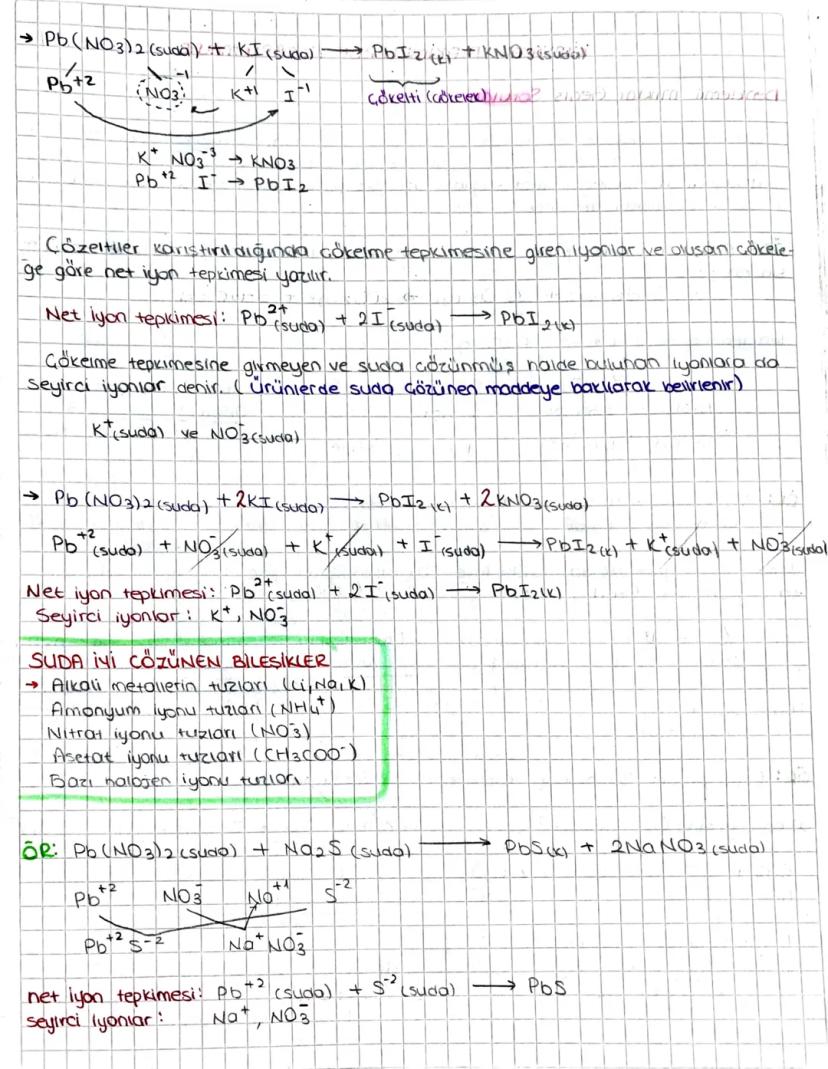 → Pb(NO3)2(suda) + KI(suda) ⟶ PbI2(k) + KNO3(suda)
Pb+2 NO3-1 K+1 I-1 çökelti (çökelek)
K+ NO3-3 → KNO3
Pb+2 I- → PbI2
Çözeltiler karıştırıldığında çökelme tepkimesine giren iyonlar ve oluşan çökele-
ğe göre net iyon tepkimesi yazılır.
Net iyon tepkimesi: Pb2+(suda) + 2I-(suda) ⟶ PbI2(k)
Çökelme tepkimesine girmeyen ve suda çözünmüş halde bulunan iyonlara da
seyirci iyonlar denir. (Ürünlerde suda çözünen maddeye bakılarak belirlenir)
K+(suda) ve NO3-(suda)
→ Pb(NO3)2(suda) + 2KI(suda) ⟶ PbI2(k) + 2KNO3(suda)
Pb+2(suda) + NO3-(suda) + K+(suda) + I-(suda) ⟶ PbI2(k) + K+(suda) + NO3-(suda)
Net iyon tepkimesi: Pb2+(suda) + 2I-(suda) ⟶ PbI2(k)
Seyirci iyonlar: K+, NO3-
SUDA İYİ ÇÖZÜNEN BİLEŞİKLER
→ Alkali metallerin tuzları (Li, Na, K)
Amonyum iyonu tuzları (NH4+)
Nitrat iyonu tuzları (NO3-)
Asetat iyonu tuzları (CH3COO-)
Bazı halojen iyonu tuzları
ÖR: Pb(NO3)2(suda) + Na2S(suda) ⟶ PbS(k) + 2NaNO3(suda)
Pb+2 NO3- Na+1 S-2
Pb+2 S-2 Na+ NO3-
net iyon tepkimesi: Pb+2(suda) + S-2(suda) ⟶ PbS
seyirci iyonlar: Na+, NO3-